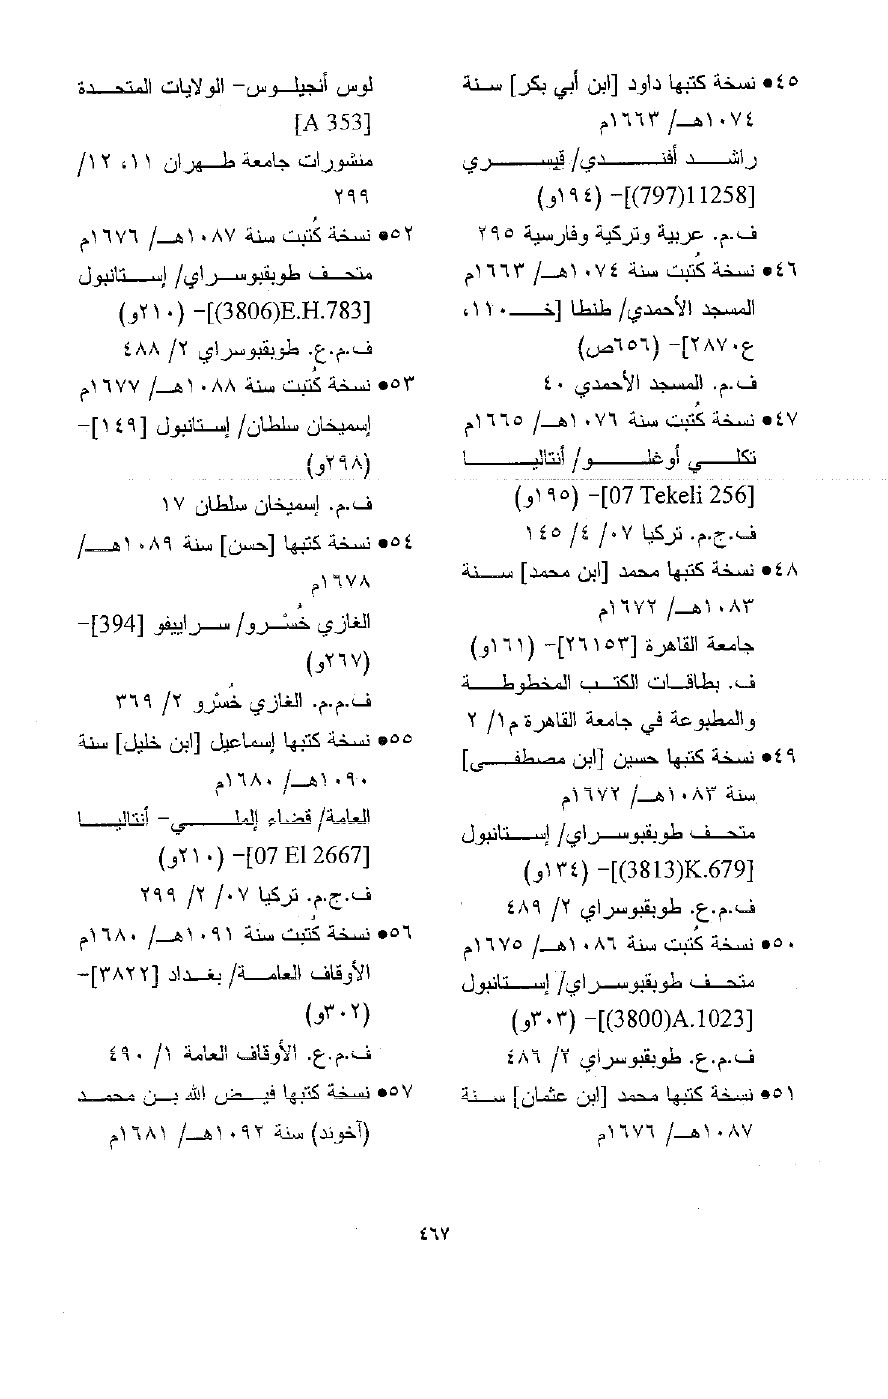 ٤٥• نسخة كتبها داود [ابن أبي بكر] سنة
١٠٧٤هـ/ ١٦٦٣م
راشد أفندي/ قيسري
[11258(797)]- (١٩٤و)
ف.م. عربية وتركية وفارسية ٢٩٥
٤٦• نسخة كُتبت سنة ١٠٧٤هـ/ ١٦٦٣م
المسجد الأحمدي/ طنطا [خـ١١٠،
ع٢٨٧٠]- (٦٥٦ص)
ف.م. المسجد الأحمدي ٤٠
٤٧• نسخة كُتبت سنة ١٠٧٦هـ/ ١٦٦٥م
تكلي أوغلو/ أنتاليا
[07 Tekeli 256]- (١٩٥و)
ف.ج.م. تركيا ٠٧/ ٤/ ١٤٥
٤٨• نسخة كتبها محمد [ابن محمد] سنة
١٠٨٣هـ/ ١٦٧٢م
جامعة القاهرة [٢٦١٥٣]- (١٦١و)
ف. بطاقات الكتب المخطوطة
والمطبوعة في جامعة القاهرة م١/ ٢
٤٩• نسخة كتبها حسين [ابن مصطفى]
سنة ١٠٨٣هـ/ ١٦٧٢م
متحف طوبقبوسراي/ إستانبول
[K.679(3813)]- (١٣٤و)
ف.م.ع. طوبقبوسراي ٢/ ٤٨٩
٥٠• نسخة كُتبت سنة ١٠٨٦هـ/ ١٦٧٥م
متحف طوبقبوسراي/ إستانبول
[A.1023(3800)]- (٣٠٣و)
ف.م.ع. طوبقبوسراي ٢/ ٤٨٦
٥١• نسخة كتبها محمد [ابن عثمان] سنة
١٠٨٧هـ/ ١٦٧٦م
لوس أنجيلوس- الولايات المتحدة
[A 353]
منشورات جامعة طهران ١١، ١٢/
٢٩٩
٥٢• نسخة كُتبت سنة ١٠٨٧هـ/ ١٦٧٦م
متحف طوبقبوسراي/ إستانبول
[E.H.783(3806)]- (٢١٠و)
ف.م.ع. طوبقبوسراي ٢/ ٤٨٨
٥٣• نسخة كُتبت سنة ١٠٨٨هـ/ ١٦٧٧م
إسميخان سلطان/ إستانبول [١٤٩]-
(٢٩٨و)
ف.م. إسميخان سلطان ١٧
٥٤• نسخة كتبها [حسن] سنة ١٠٨٩هـ/
١٦٧٨م
الغازي خُسْرو/ سراييفو [394]-
(٢٦٧و)
ف.م.م. الغازي خُسْرو ٢/ ٣٦٩
٥٥• نسخة كتبها إسماعيل [ابن خليل] سنة
١٠٩٠هـ/ ١٦٨٠م
العامة/ قضاء إلملي- أنتاليا
[07 El 2667]- (٢١٠و)
ف.ج.م. تركيا ٠٧/ ٢/ ٢٩٩
٥٦• نسخة كُتبت سنة ١٠٩١هـ/ ١٦٨٠م
الأوقاف العامة/ بغداد [٣٨٢٢]-
(٣٠٢و)
ف.م.ع. الأوقاف العامة ١/ ٤٩٠
٥٧• نسخة كتبها فيض الله بن محمد
(آخوند) سنة ١٠٩٢هـ/ ١٦٨١م
٤٦٧